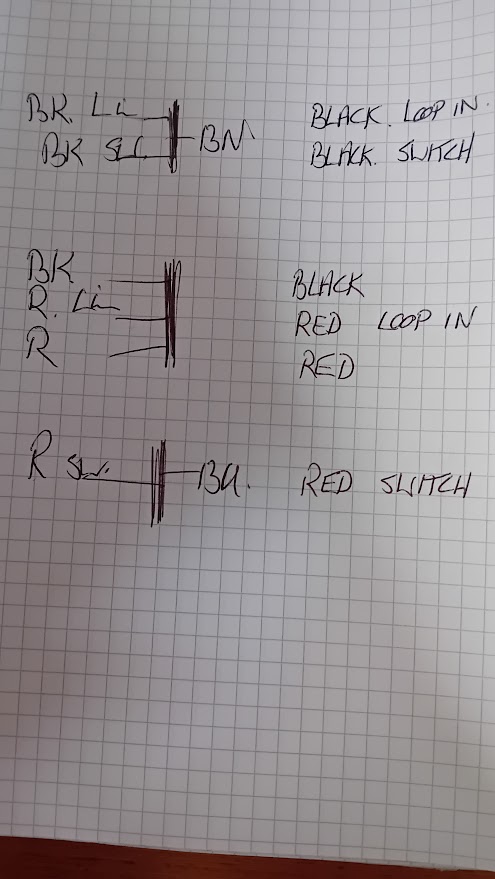 BK. Li BN BLACK LOOP IN.
BK SW. BLACK. SWITCH
BK BLACK
R. Li RED LOOP IN
R RED
R SW. BU. RED SWITCH